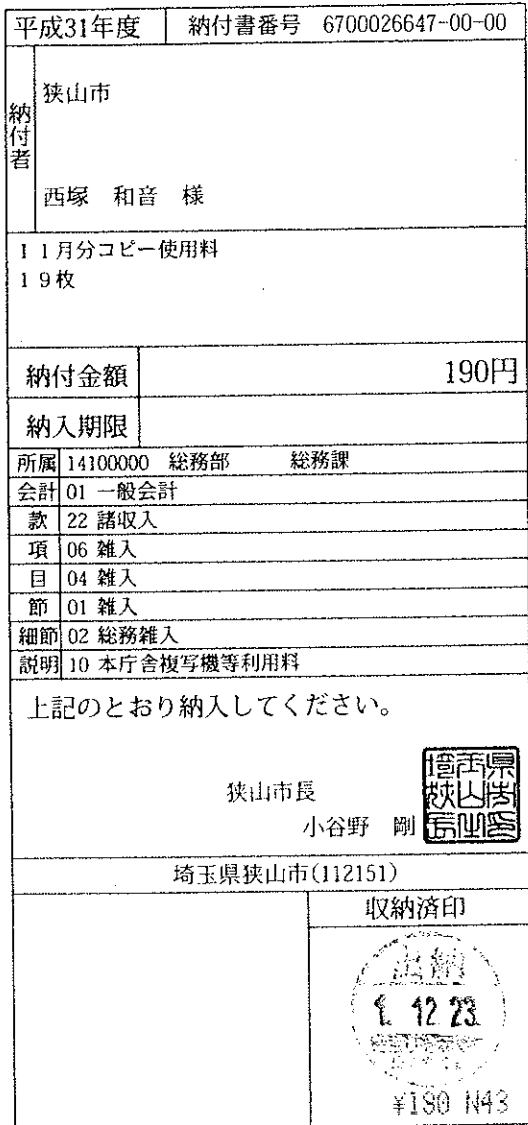 平成31年度 納付書番号 6700026647-00-00
納付者
狭山市
西塚 和音 様
11月分コピー使用料
19枚
納付金額 190円
納入期限
所属 14100000 総務部 総務課
会計 01 一般会計
款 22 諸収入
項 06 雑入
目 04 雑入
節 01 雑入
細節 02 総務雑入
説明 10 本庁舎複写機等利用料
上記のとおり納入してください。
狭山市長
小谷野 剛
埼玉県狭山市(112151)
収納済印
出納
1. 12. 23.
¥190 N43